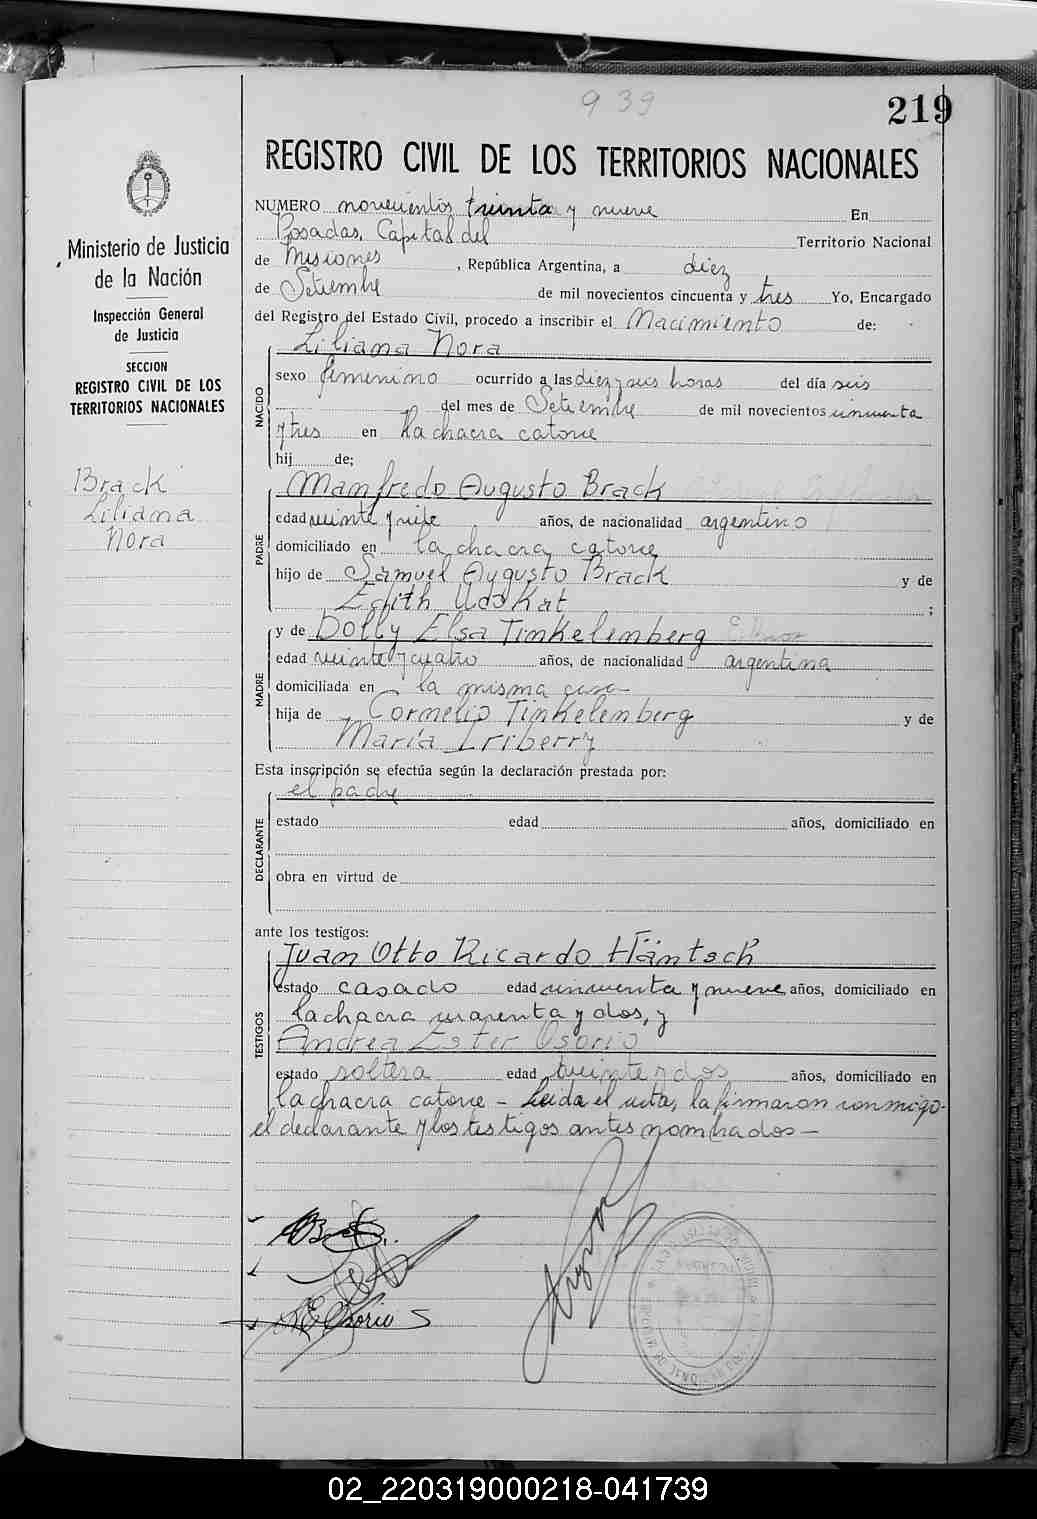 939
219
REGISTRO CIVIL DE LOS TERRITORIOS NACIONALES
Ministerio de Justicia
de la Nación
Inspección General
de Justicia
SECCION
REGISTRO CIVIL DE LOS
TERRITORIOS NACIONALES
Brack
Liliana
Nora
NUMERO novecientos treinta y nueve En
Posadas, Capital del Territorio Nacional
de Misiones, República Argentina, a diez
de Setiembre de mil novecientos cincuenta y tres Yo, Encargado
del Registro del Estado Civil, procedo a inscribir el Nacimiento de:
NACIDO
Liliana Nora
sexo femenino ocurrido a las diez y seis horas del día seis
del mes de Setiembre de mil novecientos cincuenta
y tres en la chacra catorce
hij de;
PADRE
Manfredo Augusto Brack
edad veinte y siete años, de nacionalidad argentino
domiciliado en la chacra catorce
hijo de Samuel Augusto Brack y de
Edith Udokat;
MADRE
y de Dolly Elsa Tinkelenberg
edad veinte y cuatro años, de nacionalidad argentina
domiciliada en la misma casa
hija de Cornelio Tinkelenberg y de
María Iriberry
Esta inscripción se efectúa según la declaración prestada por:
DECLARANTE
el padre
estado edad años, domiciliado en
obra en virtud de
ante los testigos:
TESTIGOS
Juan Otto Ricardo Häntsch
estado casado edad cincuenta y nueve años, domiciliado en
la chacra cuarenta y dos, y
Andrea Ester Osorio
estado soltera edad veinte y dos años, domiciliado en
la chacra catorce - Leida el acta, la firmaron conmigo
el declarante y los testigos antes nombrados -
AE Osorio S
02_220319000218-041739